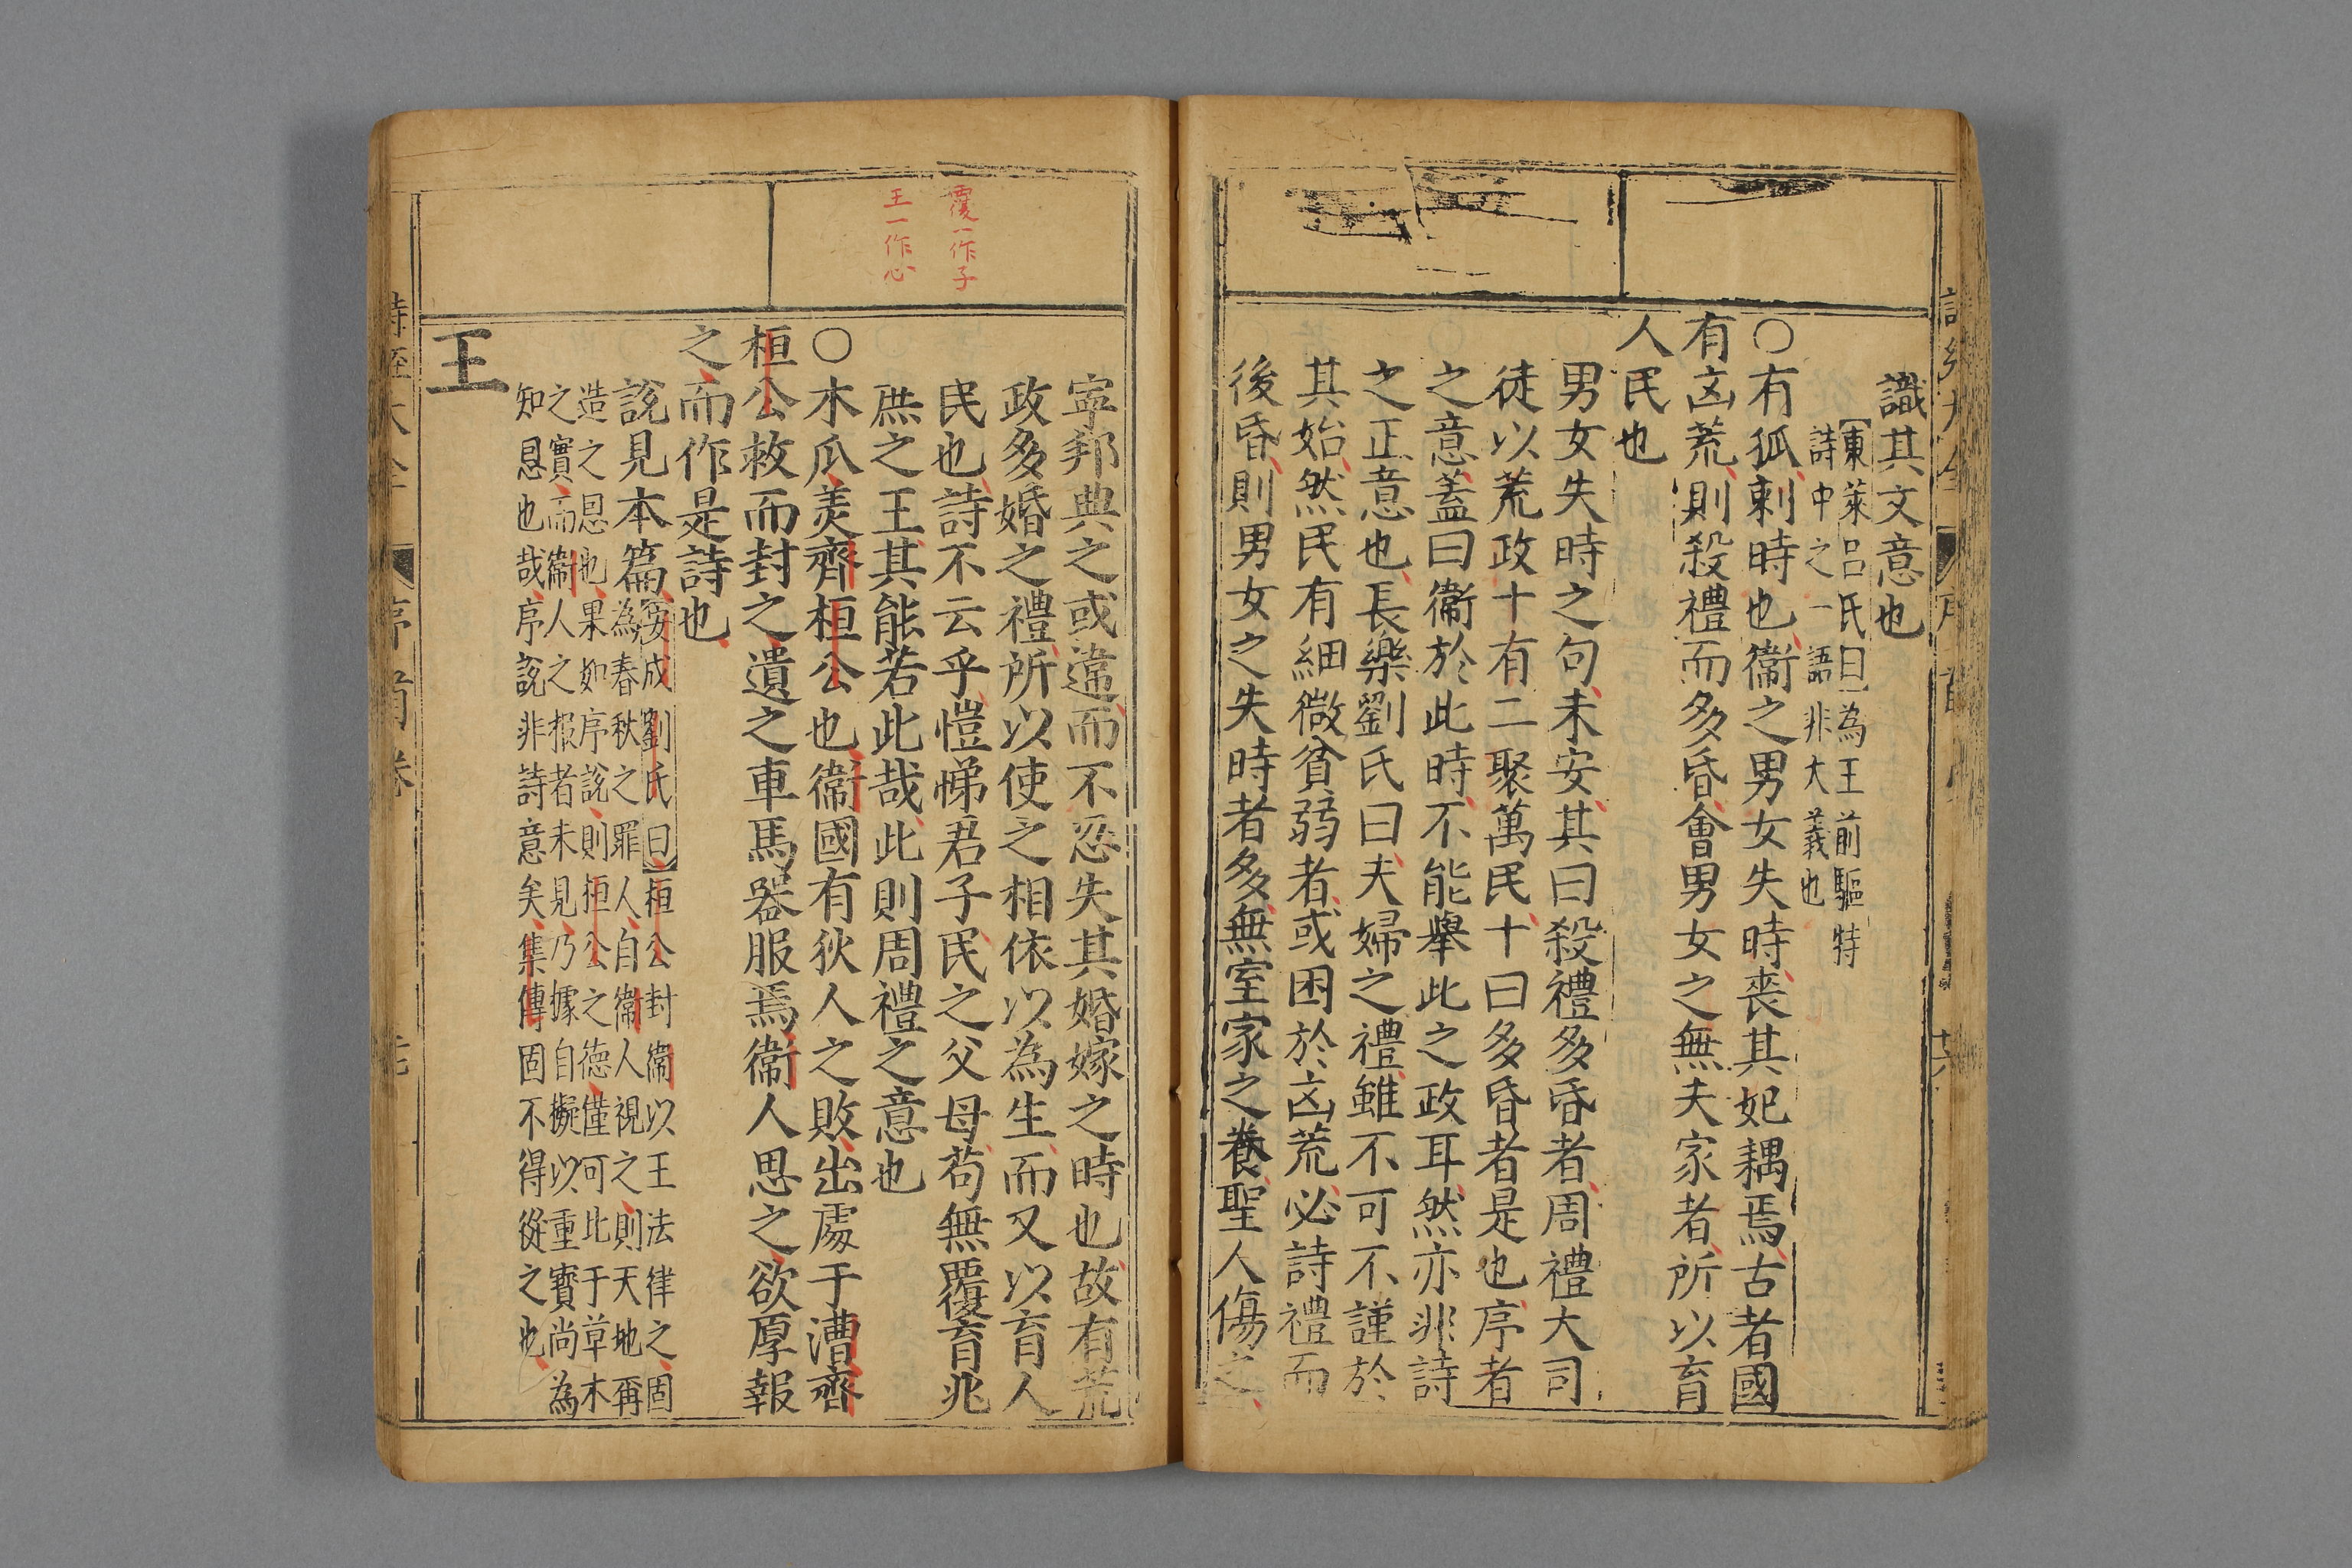 識其文意也
【東萊呂氏曰】為王前驅特
詩中之一語非大義也
○有狐刺時也衞之男女失時喪其妃耦焉古者國
有凶荒則殺禮而多昏會男女之無夫家者所以育
人民也
男女失時之句未安其曰殺禮多昏者周禮大司
徒以荒政十有二聚萬民十曰多昏者是也序者
之意蓋曰衞於此時不能舉此之政耳然亦非詩
之正意也長樂劉氏曰夫婦之禮雖不可不謹於
其始然民有細微貧弱者或困於凶荒必詩禮而
後昏則男女之失時者多無室家之養聖人傷之
覆一作子
王一作心
寧邦典之或違而不忍失其婚嫁之時也故有荒
政多婚之禮所以使之相依以為生而又以育人
民也詩不云乎愷悌君子民之父母苟無覆育兆
庶之王其能若此哉此則周禮之意也
○木瓜美齊桓公也衞國有狄人之敗出處于漕齊
桓公救而封之遺之車馬器服焉衞人思之欲厚報
之而作是詩也
說見本篇【安成劉氏曰】桓公封衞以王法律之固
為春秋之罪人自衞人視之則天地再
造之恩也果如序說則桓公之德僅可比于草木
之實而衞人之报者未見乃據自擬以重寶尚為
知恩也哉序說非詩意矣集傳固不得從之也
王